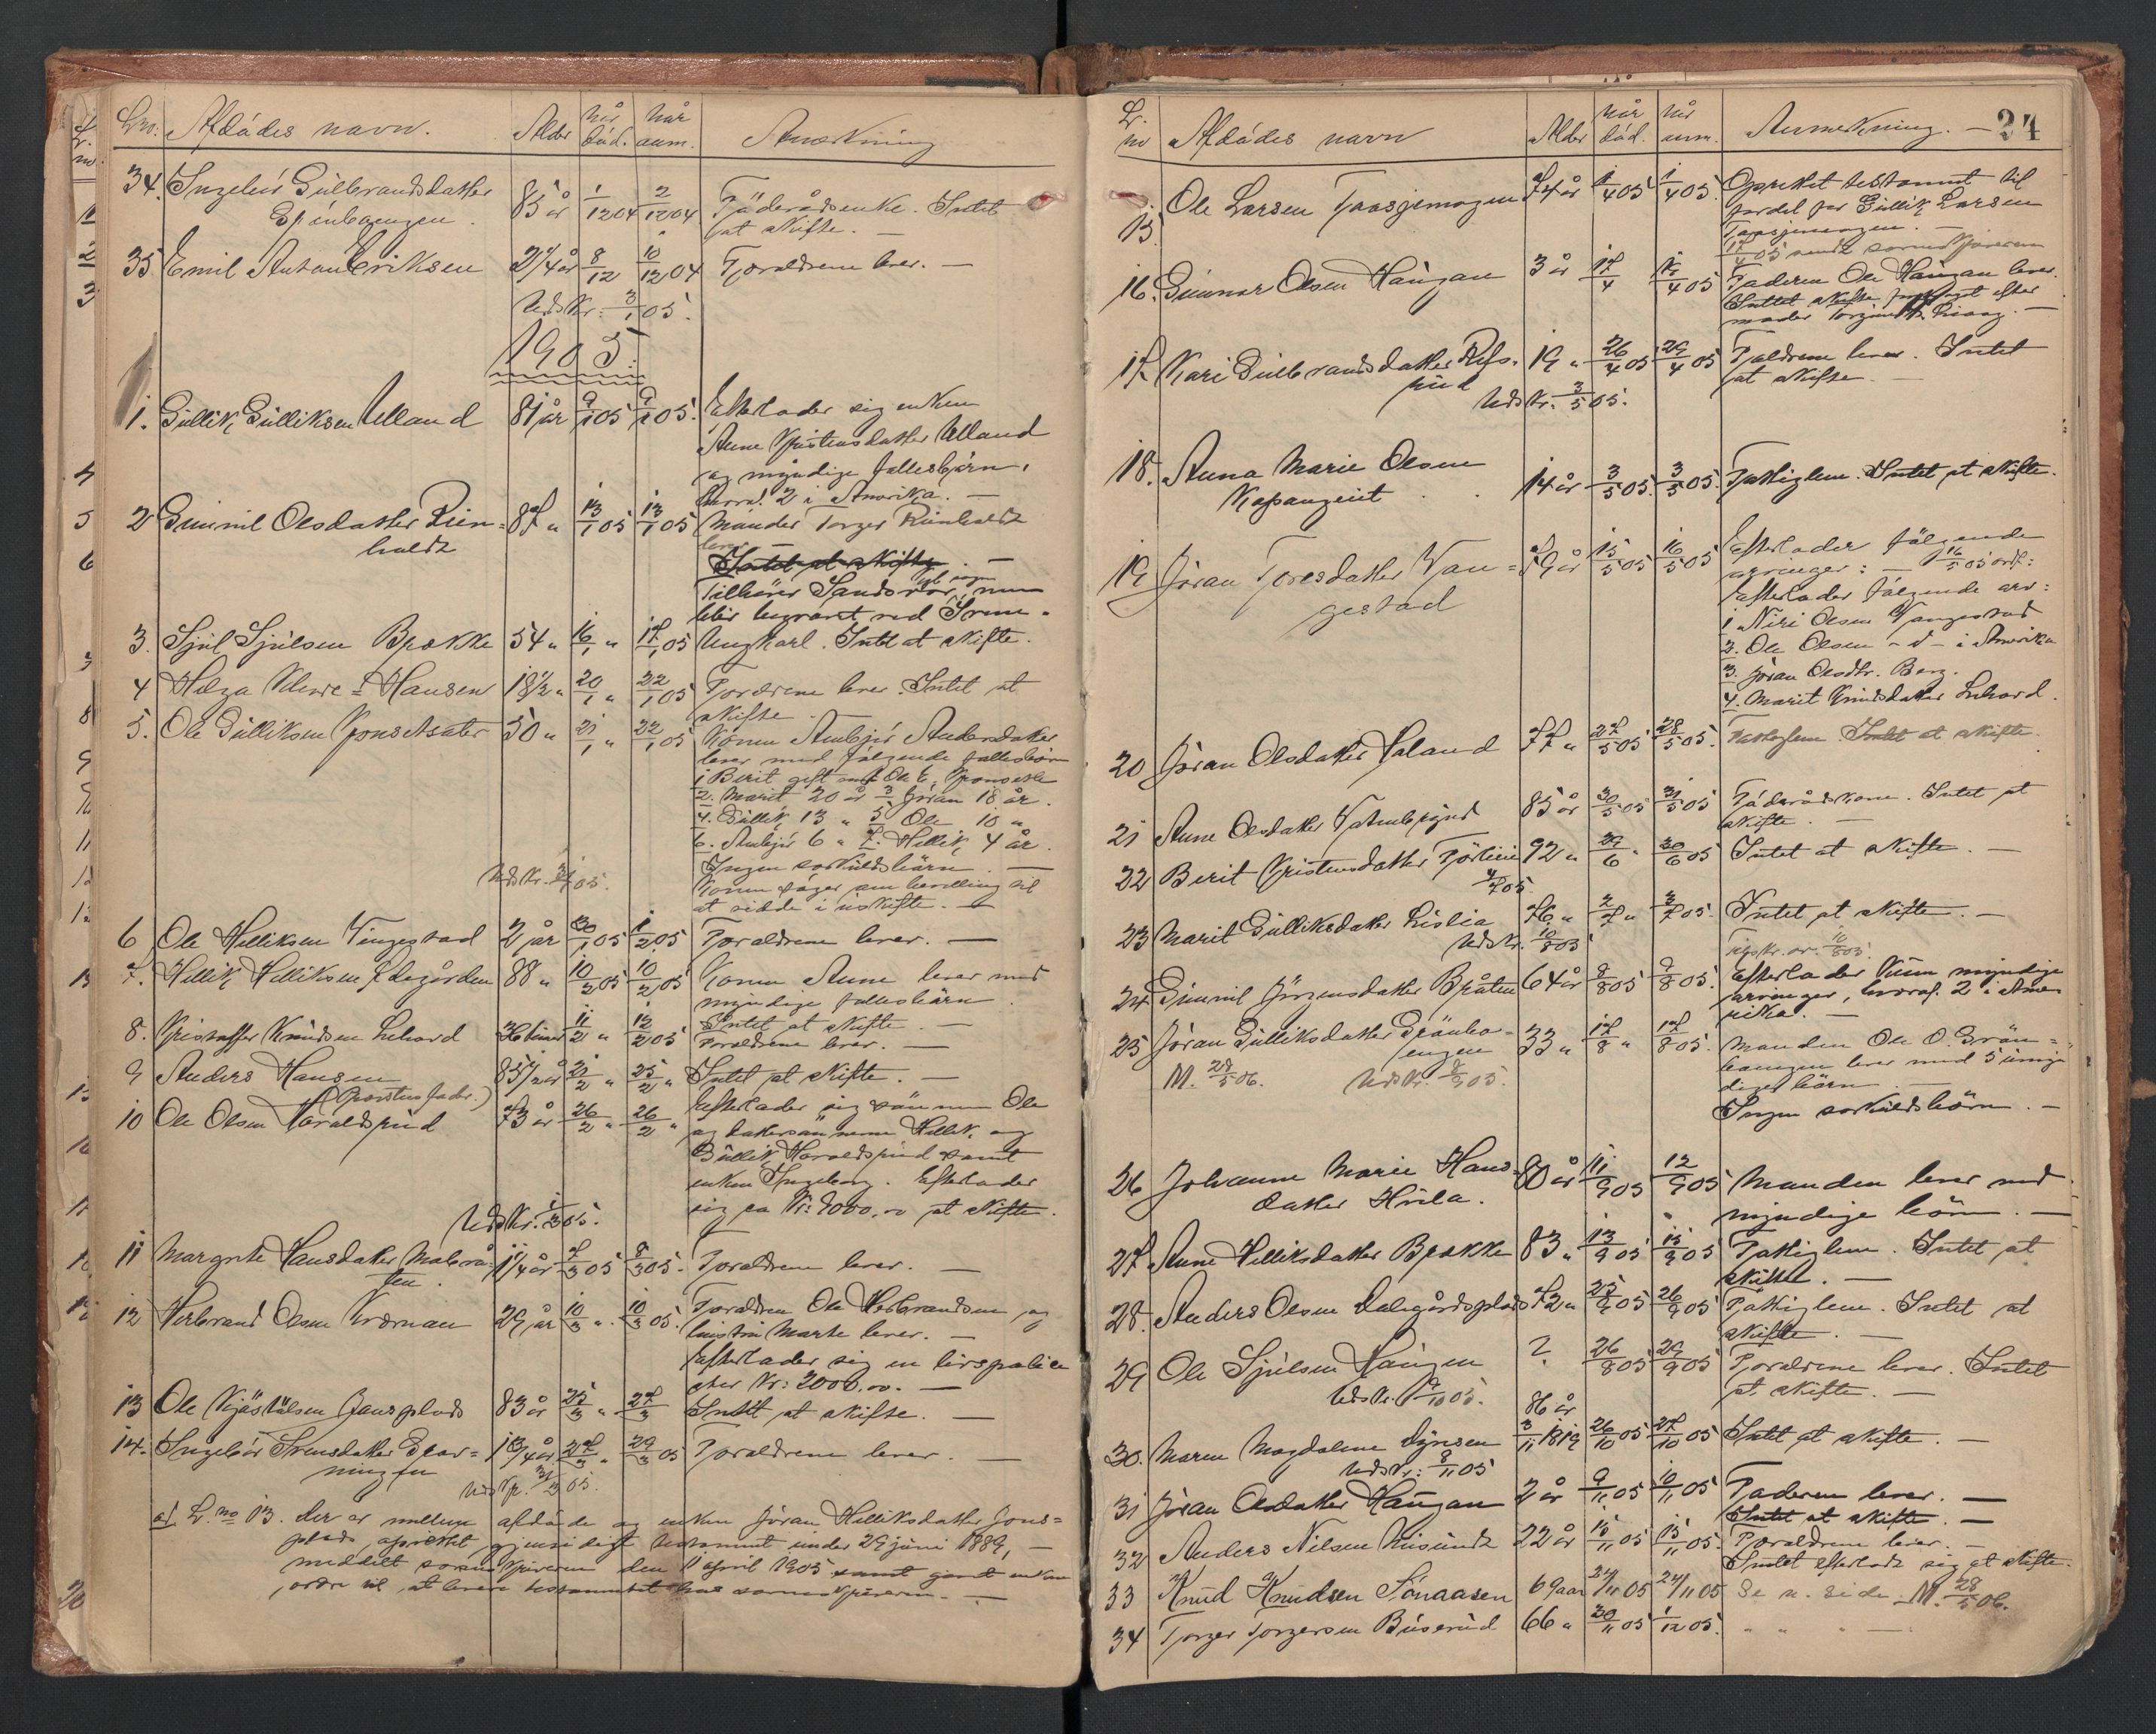 Lno. Afdødes navn. Alder Når død. Når anm. Anmerkning
34. Ingebor Gulbrandsdatter 85 år 1/12 04 2/12 04 Føderådsenke. Intet
at skifte. —
35. Emil Anton Eriksen 2 1/4 år 8/12 10/12 04 Forældrene lever. —
Uds Kr. 3/1 05.
1905.
1. Gullik Gulliksen Ulland 81 år 9/1 05 9/1 05. Efterlader sig enken
Anne Kristensdatter Ulland
og myndige fællesbørn,
hvoraf 2 i Amerika. —
2 Gunnil Olsdatter Rien= 87 " 13/1 05 13/1 05 Manden Torger Rienholdt
holdt lever
Intet at skifte. —
Tilhører Sandsvær, men
blir begravet ved Svene.
3. Sjul Sjulsen Brekke 54 " 16/1 " 17/1 05 Ungkarl. Intet at skifte.
4 Helga Hansen 18 1/2 " 20/1 " 22/1 05 Forældrene lever. Intet at
skifte
5. Ole Gulliksen 50 " 21/1 " 22/1 05 Konen Anbjør Andersdatter
lever med følgende fællesbørn
1 Berit gift med Ole
2. Marit 20 år 3 Jøran 18 år.
4. Gullik 13 " 5 Ole 10 "
6. Anbjør 6 " 7. Hellik 4 år.
Ingen særkuldsbørn. —
Uds Kr. 31/1 05. Konen søger om bevilling til
at sidde i uskifte. —
6 Ole Helliksen Vingestad 2 år 30/1 05 1/2 05 Forældrene lever. —
7. Hellik Helliksen Dalegården 88 " 10/2 05 10/2 05 Konen Anne lever med
myndige fællesbørn.
8. Kristoffer Knudsen Lehord 36 timer 11/2 " 12/2 05 Intet at skifte. —
Forældrene lever. —
9 Anders Hansen 85 1/2 år 21/2 " 25/2 " Intet at skifte. —
10 Ole Olsen Haraldsrud 73 år 26/2 " 26/2 " Efterlader sig sønnen Ole
og dattersønnerne Hellik og
Gullik Haraldsrud samt
enken Ingeborg. Efterlader
Uds Kr. 1/3 05. sig ca Kr: 9000,00 at skifte.
11 Margrete Hansdatter Mobrå= 1 1/4 år 7/3 05 8/3 05. Forældrene lever. —
ten.
12 Herbrand Olsen Kværnan 29 år 10/3 " 10/3 05. Forældrene Ole Herbrandsen og
hustru Marte lever. —
Efterlader sig en livspolice
stor Kr: 2000,00. —
13 Ole Kjøstulsen Jonsplads 83 år 25/3 " 27/3 Intet at skifte. —
14. Ingebor Svensdatter 1 3/4 år 27/3 " 29/3 05 Forældrene lever. —
Uds Kr. 31/3 05.
ad L. no 13. Der er mellem afdøde og enken Jøran Helliksdatter Jons=
plads oprettet gjensidigt testament under 29 juni 1889, —
meddelt sorenskriveren den 1 april 1905 samt givet enken
ordre til at levere testamentet hos sorenskriveren. —
L. no Afdødes navn Alder når død. når anm. Anmerkning. — 24
15. Ole Larsen Taasjemogen 74 år 1/4 05 1/4 05. Oprettet testament til
fordel for Gullik Larsen
Taasjemogen. —
17/4 05 sendt sorenskriveren
16. Gunnar Olsen Haugan 3 år 17/4 18/4 05 Faderen Ole Haugan lever.
Intet skifte foretaget efter
moder
17. Kari Gulbrandsdatter Refs= 19 " 26/4 05 29/4 05 Forældrene lever. Intet
rud at skifte. —
Uds Kr. 3/5 05.
18. Anna Marie Olsen
Kapangeiet 14 år 3/5 05. 3/5 05. Fattiglem. Intet at skifte.
19 Jøran Toresdatter Van= 59 år 15/5 05 16/5 05 Efterlader følgende
gestad arvinger: — 16/5 05
Efterlader følgende arv:
1 Niri Olsen Vangestad
2. Ole Olsen - d - i Amerika
3. Jøran Olsdtr. Berg.
4. Marit Knudsdatter Lehord.
20 Jøran Olsdatter Haland 77 " 27/5 05 28/5 05. Fattiglem Intet at skifte.
21 Anne Olsdatter 85 år 30/5 05 31/5 05 Føderådskone. Intet at
skifte. —
22 Berit Kristensdatter 92 " 29/6 " 30/6 05 Intet at skifte. —
4/7 05
23 Marit Gulliksdatter Lislia 76 " 2/7 " 3/7 05. Intet at skifte. —
Uds Kr. 10/8 05
24 Gunnil Jørgensdatter Bråten 64 år 8/8 05 9/8 05. Efterlader kun myndige
arvinger, hvoraf 2 i Ame=
rika. —
25 Jøran Gulliksdatter Grønbo= 33 " 17/8 " 17/8 05. Manden Ole O. Grøn=
engen boengen lever med 5 umyn
M. 28/5 06. Uds Kr. 8/9 05. dige børn. —
Ingen særkuldsbørn. —
26 Johanne Marie Hans= 80 år 11/9 05 12/9 05 Manden lever med
datter Hvila. myndige børn. —
27 Anne Helliksdatter Brekke 83 " 13/9 05 15/9 05 Fattiglem. Intet at
skifte. —
28. Anders Olsen Dalegårdsplads 72 " 25/9 05 26/9 05 Fattiglem. Intet at
skifte. —
29 Ole Sjulsen Haugen ? 26/8 05 29/9 05 Forældrene lever. Intet
Uds Kr. 9/10 05. at skifte. —
86 år
30. Maren Magdalene Dynsen 3/11 1819 26/10 05 27/10 05 Intet at skifte. —
Uds Kr: 8/11 05
31 Jøran Olsdatter Haugan 2 år 9/11 05 10/11 05 Faderen lever. —
Intet at skifte. —
32 Anders Nilsen Misund 22 år 15/11 05 15/11 05. Forældrene lever. —
Intet efterladt sig at skifte.
33 Knud Knudsen Sønaasen 69 aar 24/11 05 24/11 05 Se n. side M. 28/5 06.
34 Torger Torgersen Buserud 66 " 30/11 05 1/12 05. " " " —